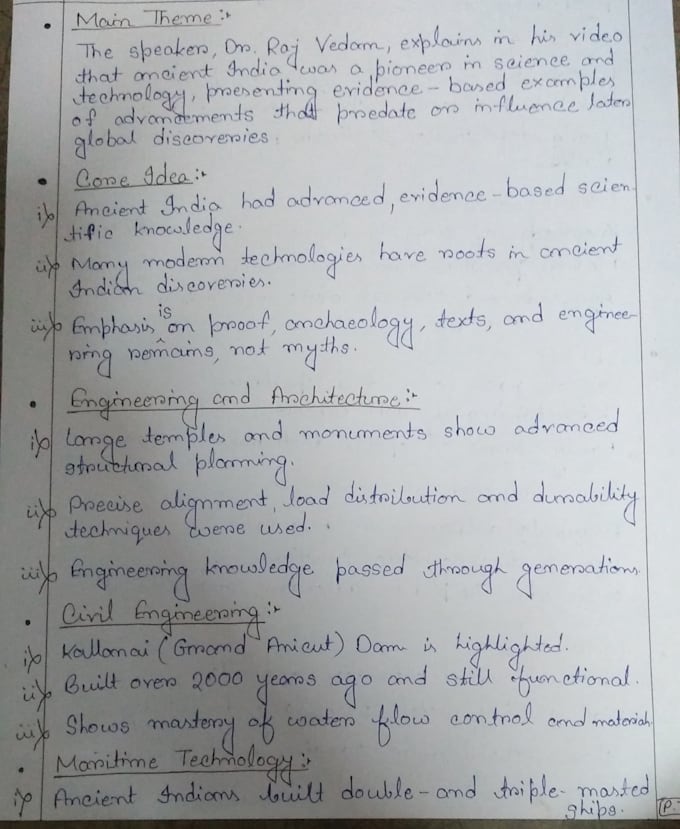 • Main Theme :-
The speaker, Dr. Raj Vedam, explains in his video
that ancient India was a pioneer in science and
technology, presenting evidence-based examples
of advancements that predate or influence later
global discoveries.
• Core Idea :-
i) Ancient India had advanced, evidence-based scien
tific knowledge.
ii) Many modern technologies have roots in ancient
Indian discoveries.
iii) Emphasis is on proof, archaeology, texts, and enginee-
ring remains, not myths.
• Engineering and Architecture :-
i) Large temples and monuments show advanced
structural planning.
ii) Precise alignment, load distribution and durability
techniques were used.
iii) Engineering knowledge passed through generations.
• Civil Engineering :-
i) Kallanai (Grand Anicut) Dam is highlighted.
ii) Built over 2000 years ago and still functional.
iii) Shows mastery of water flow control and materials
• Maritime Technology :-
i) Ancient Indians built double-and triple-masted
ships.